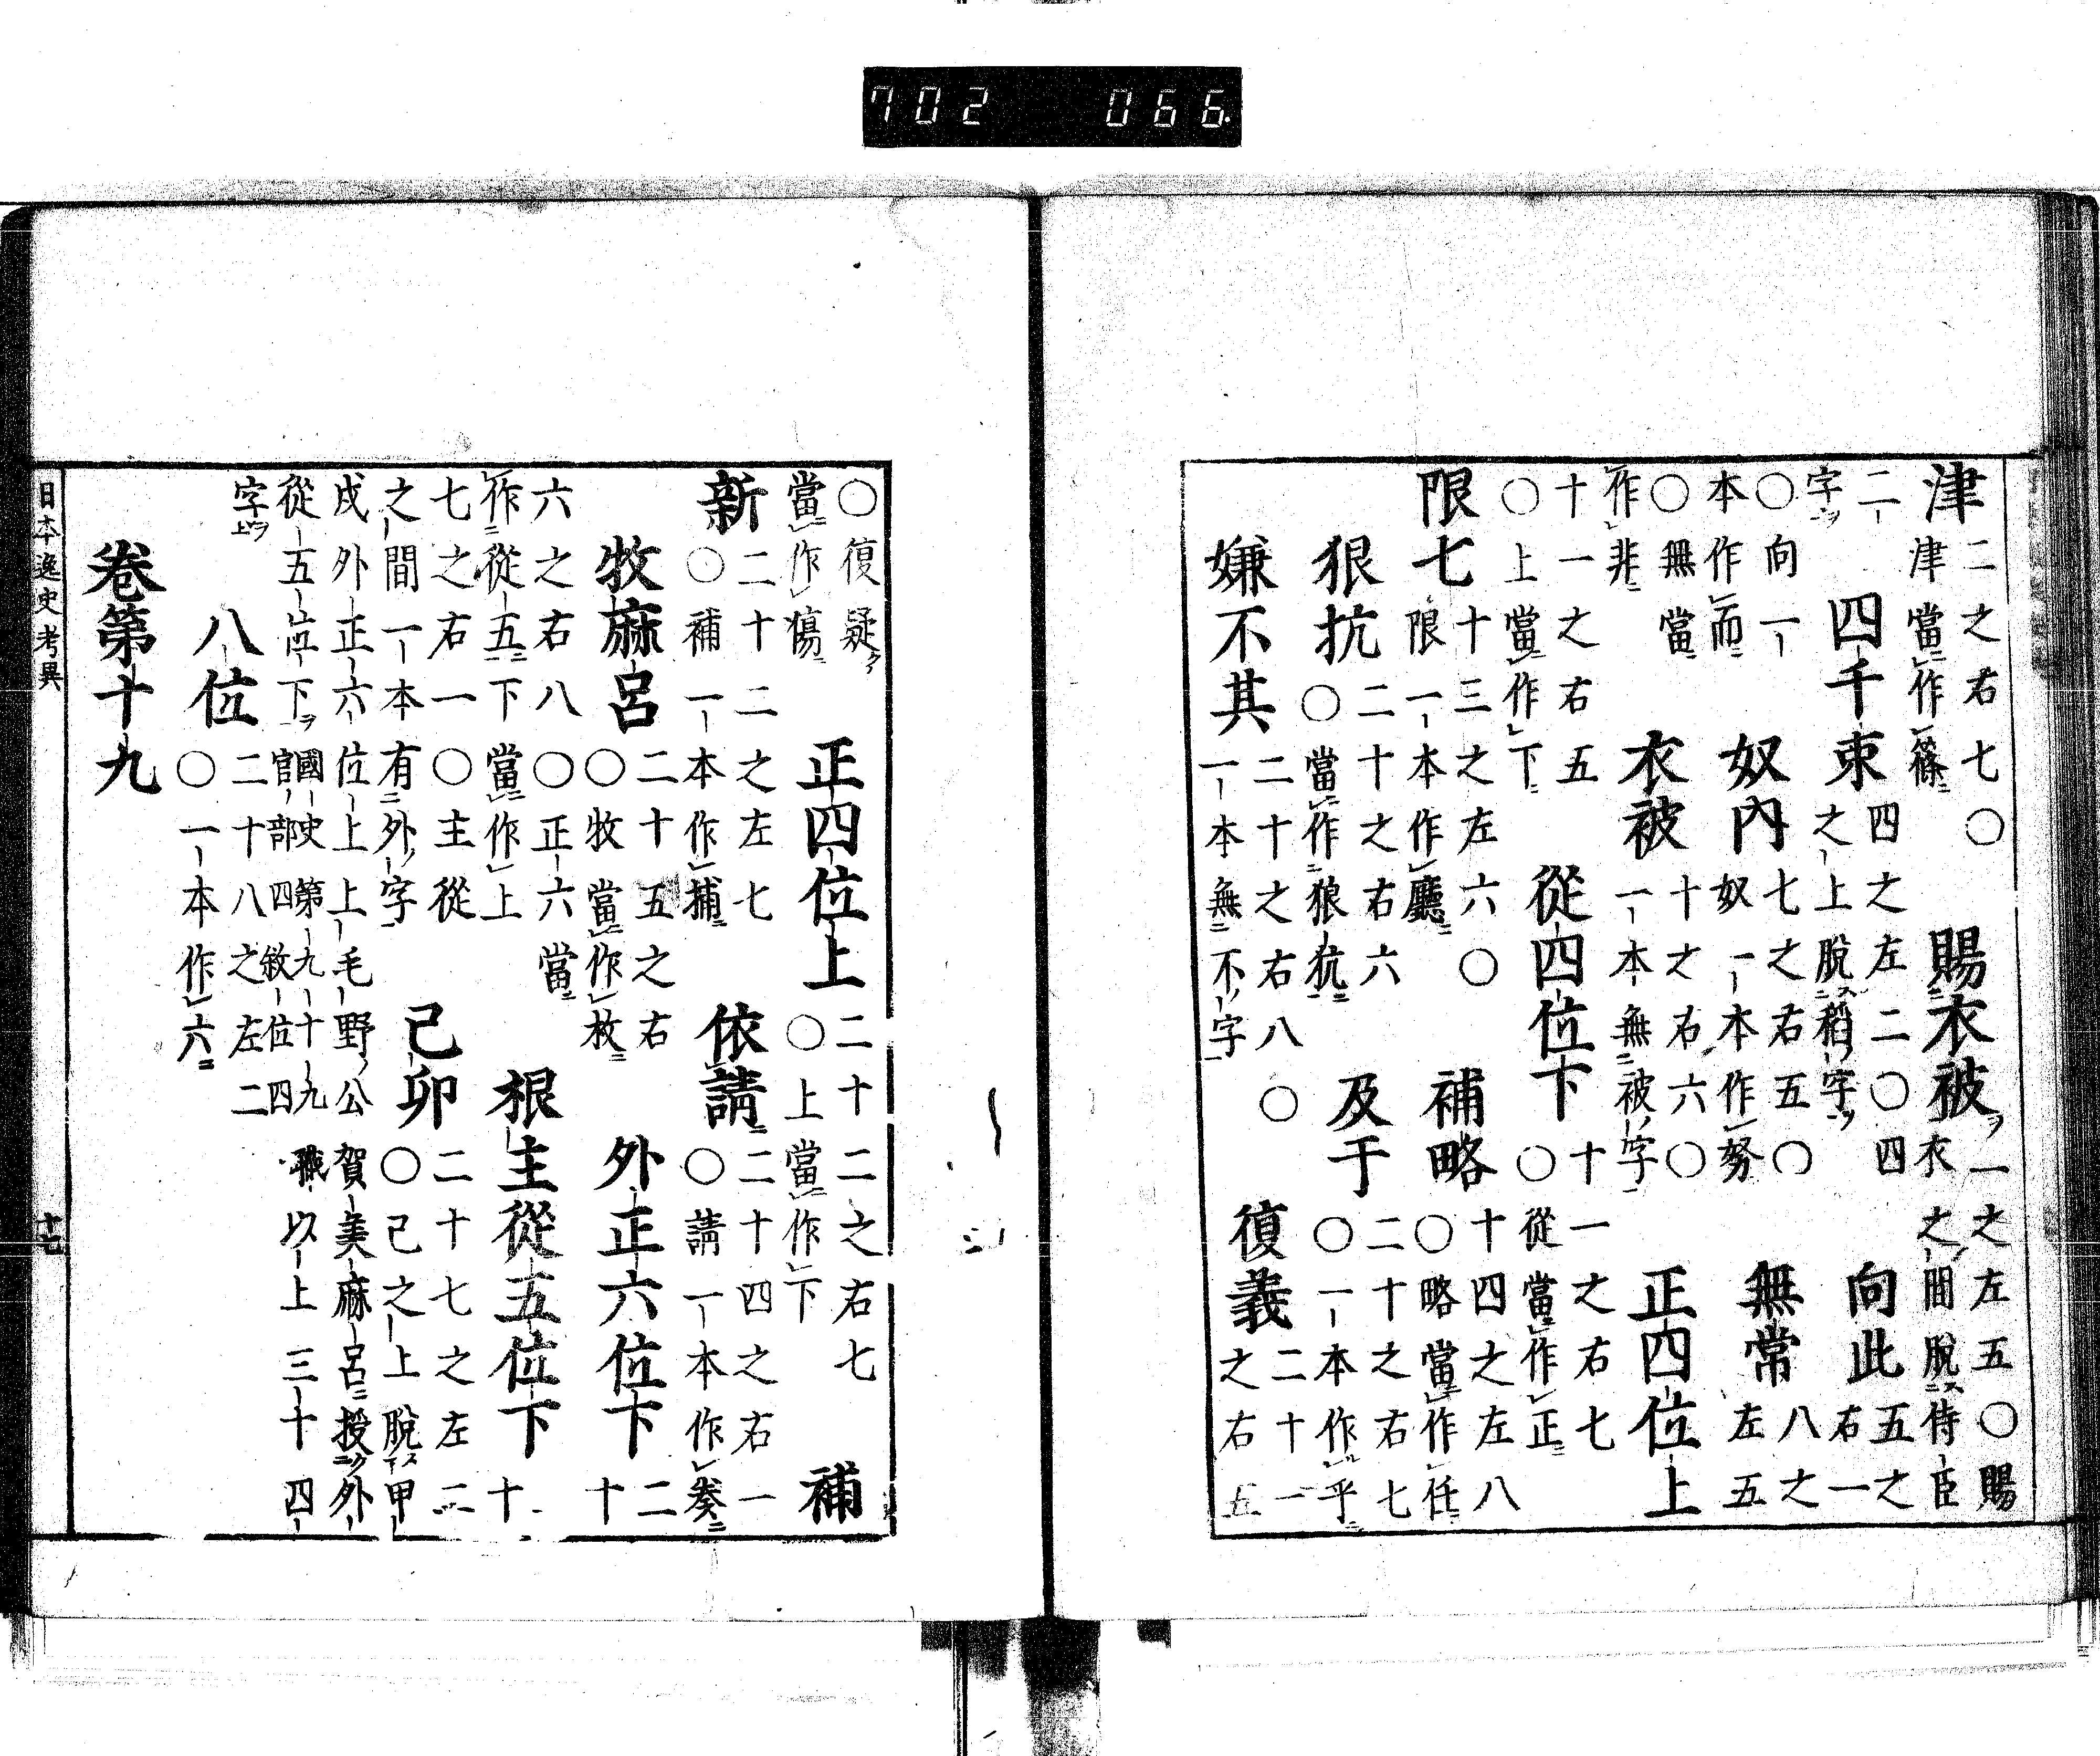 702 066
津 二之右七〇津當作篠 賜衣被 一之左五〇賜衣之間脫侍臣
二字 四千束 四之左二〇四之上脫稻字 向此 五之右一
〇向一本作而 奴內 七之右五〇奴一本作努 無常 八之左五
〇無當作非 衣被 十之右六〇一本無被字 正四位上
十一之右五〇上當作下 從四位下 十一之右七〇從當作正
限七 十三之左六〇限一本作廳 補略 十四之左八〇略當作任
狠抗 二十之右六〇當作狼抗 及于 二十之右七〇一本作乎
嫌不其 二十之右八〇一本無不字 復義 二十一之右五
〇復疑當作傷 正四位上 二十二之右七〇上當作下 補
新 二十二之左七〇補一本作捕 依請 二十四之右一〇請一本作奏
牧麻呂 二十五之右〇牧當作枚 外正六位下 二十
六之右八〇正六當作從五下當作上 根主從五位下 十
七之右一〇主從之間一本有外字 己卯 二十七之左二〇己之上脫甲
戌外正六位上上毛野公賀美麻呂授外
從五位下國史第九十九官部四敘位四職以上三十四
字 八位 二十八之左二〇一本作六
卷第十九
日本逸史考異 十七